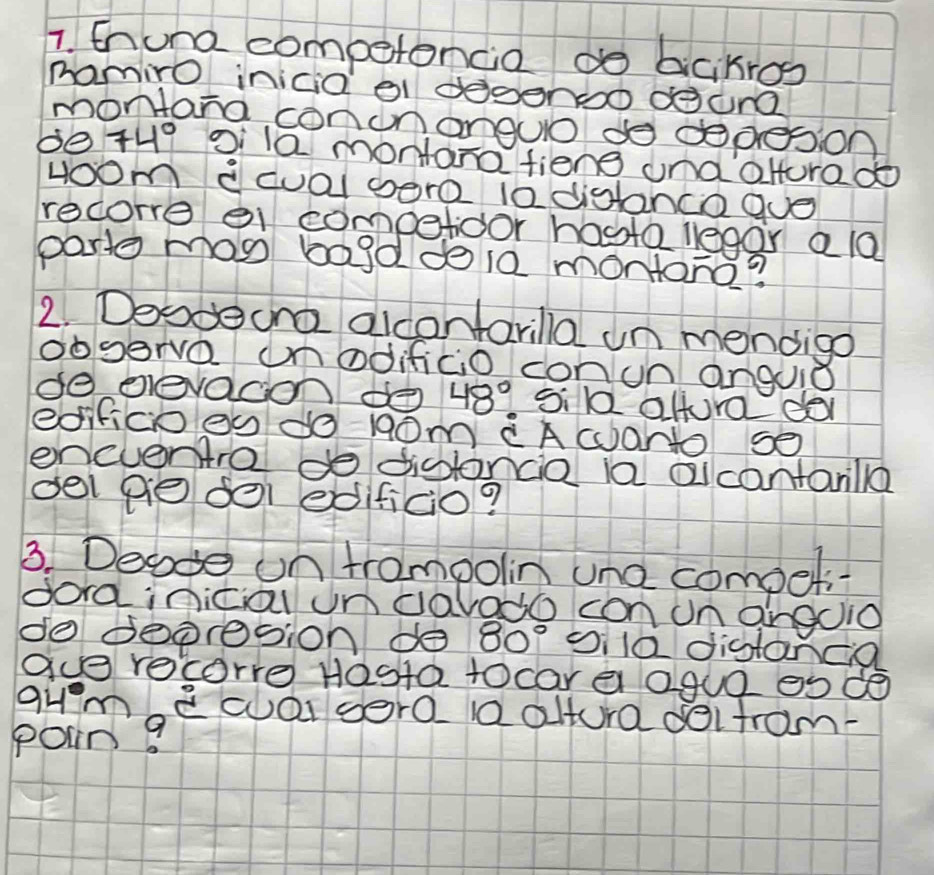 1. En una competencia de bicikros
Ramiro inicia el desenso de una
montaña con un angulo de depresion
de 74° si la montaña tiene una altura de
400m ¿cual sera la distancia que
recorre el competidor hasta llegar a la
parte mas baja de la montaña?
2. Desde una alcantarilla un mendigo
observa un edificio con un angulo
de elevacion de 48° si la altura del
edificio es de 190m ¿A cuanto se
encuentra de distancia la alcantarilla
del pie del edificio?
3. Desde un trampolin una competi-
dora inicial un clavado con un angulo
de depresion de 80° si la distancia
que recorre Hasta tocar el agua es de
94m ¿cual sera la altura del tram-
polin?